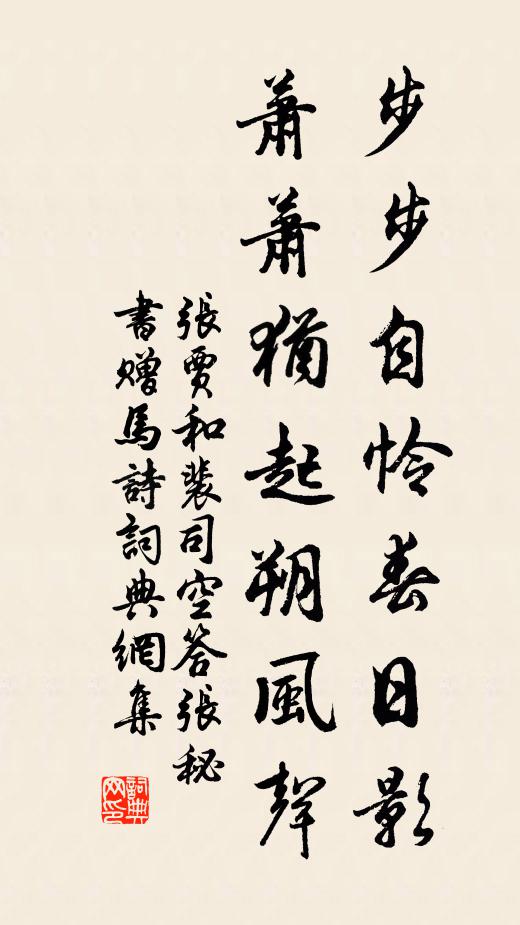 步步自怜春日影
蕭蕭猶起朔風聲
張賈和裴司空答張秘
書贈馬詩詞典網集
詞典
网印